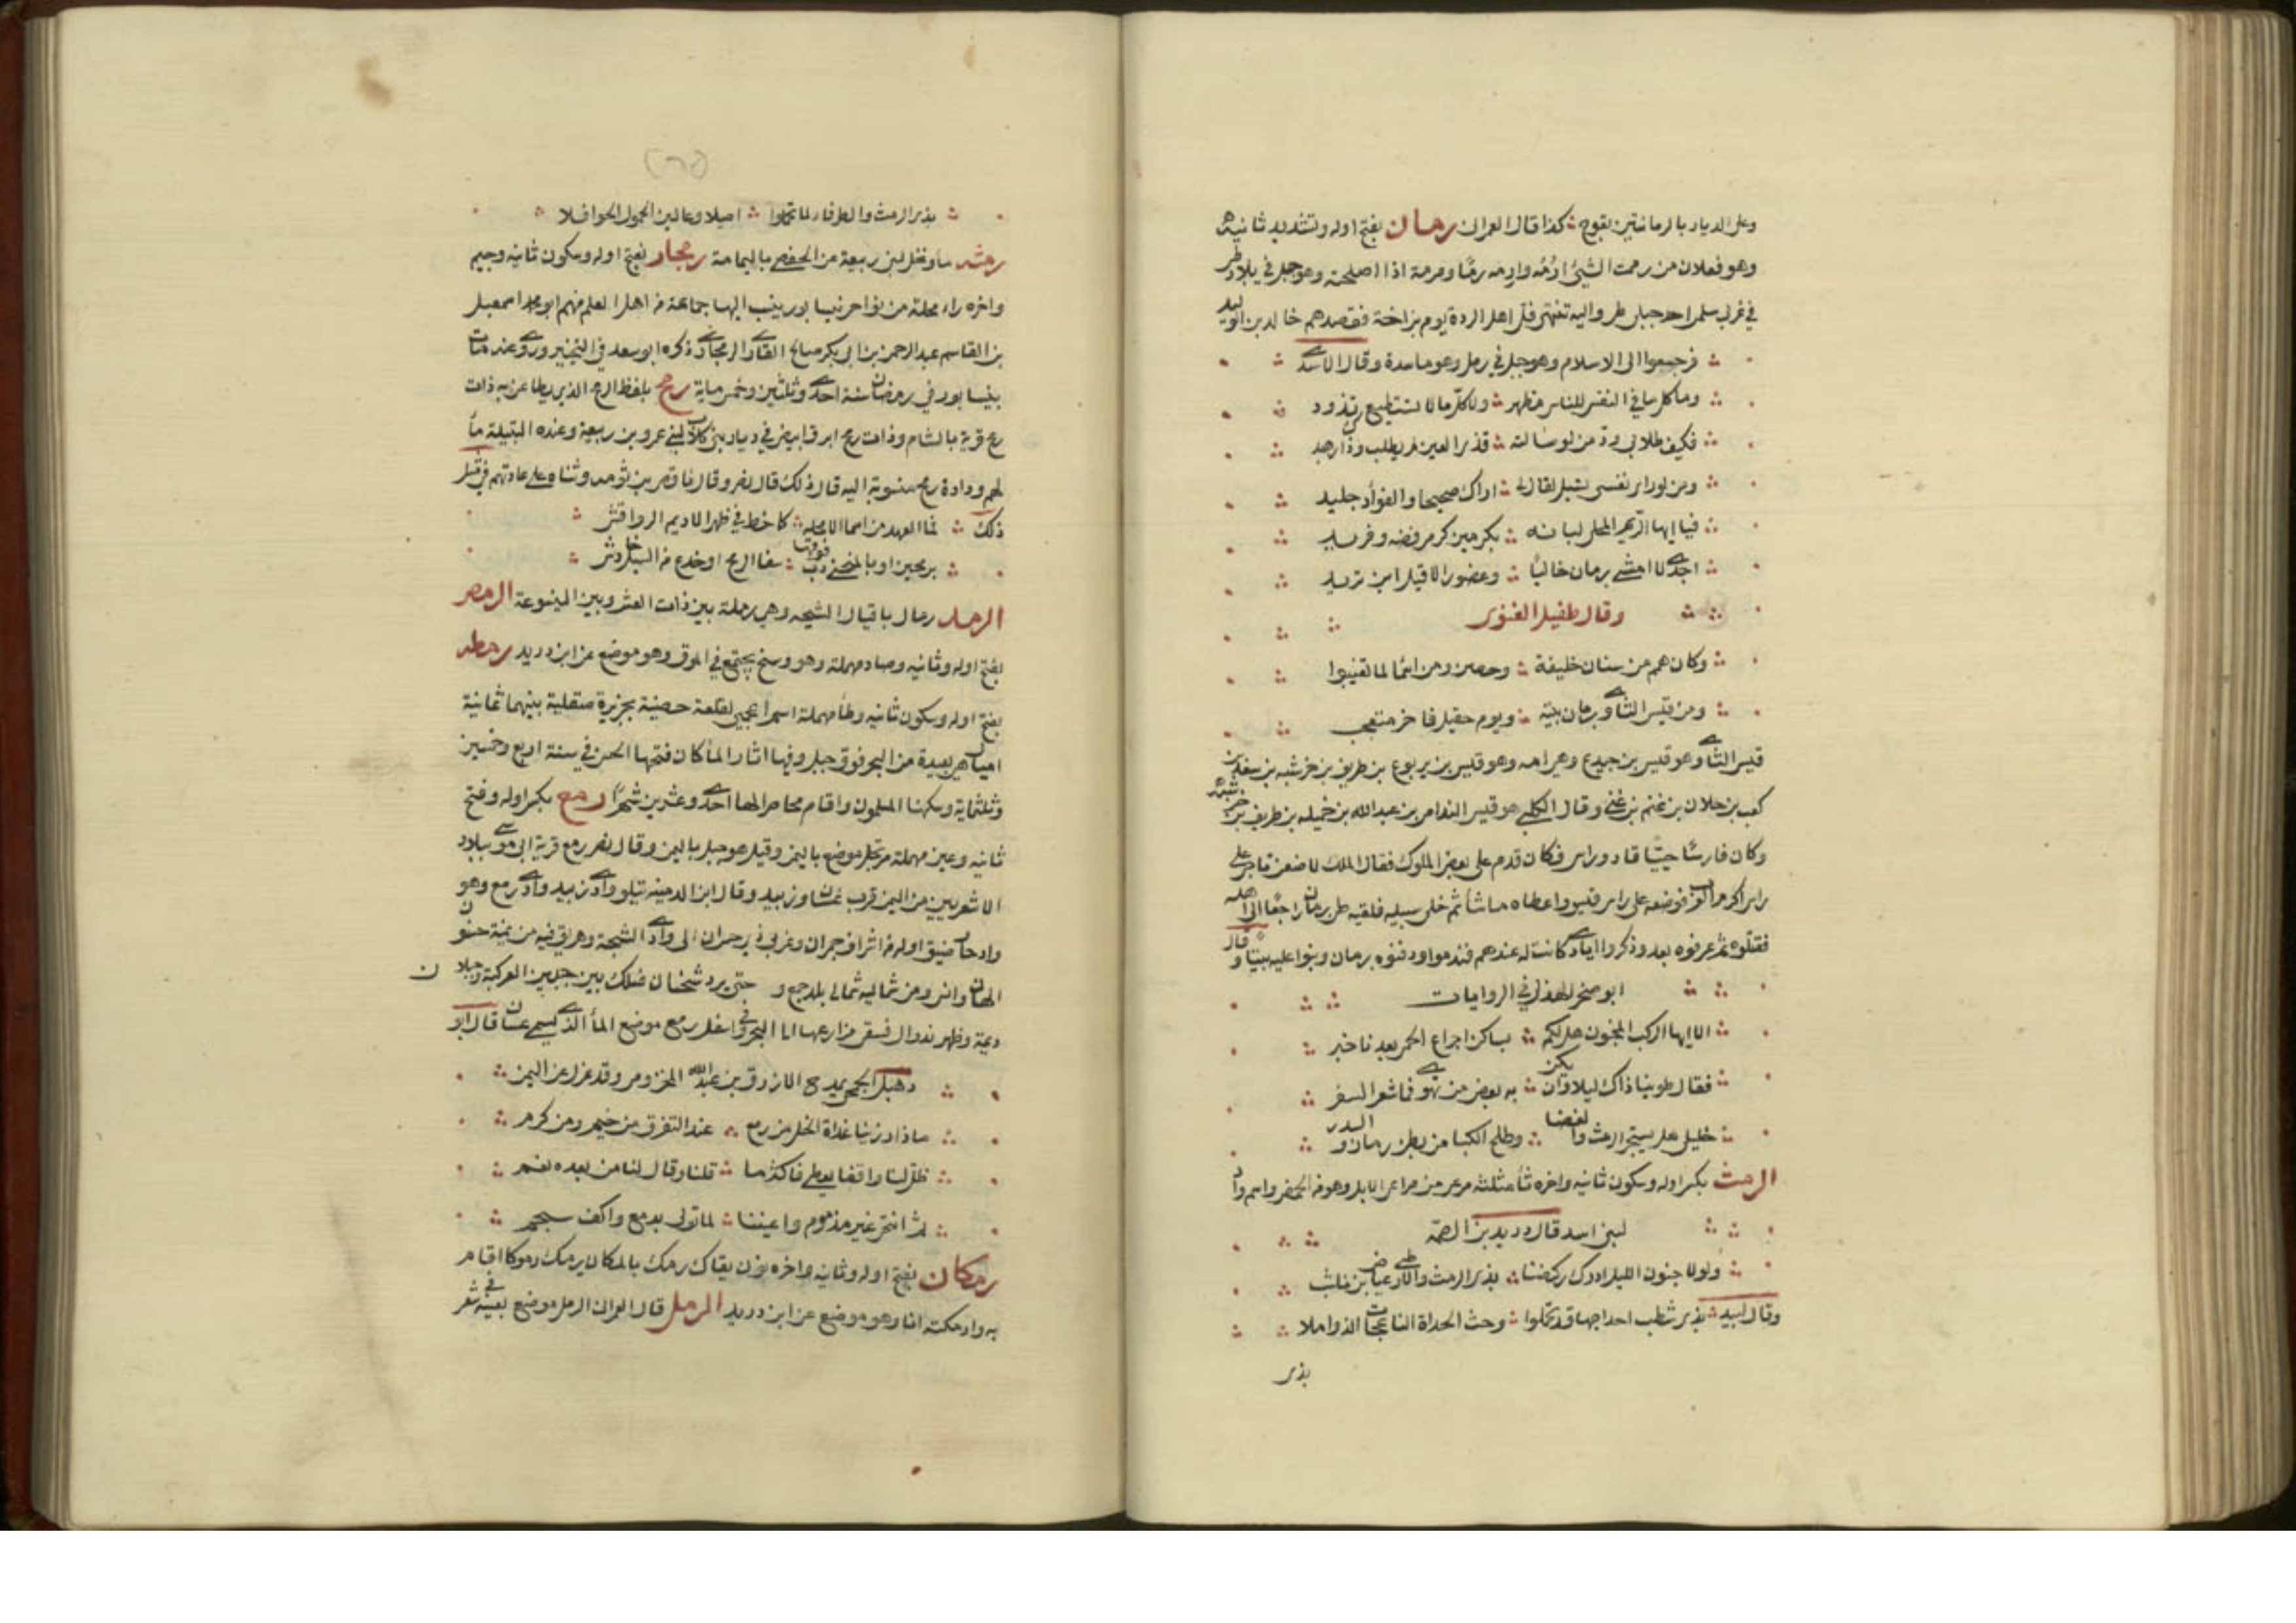 وعلى الديار بالرمانتين بعوج كذا قال العمراني رمان بفتح اوله وتشديد ثانيه
وهو فعلان من رممت الشيء ارُمّه وارِمّه رمًا ومرمة اذا اصلحته وهو جبل في بلاد طي
في غربي سلمى احد جبلي طي واليه تنتهي فلّ اهل الردة يوم بزاخة فقصدهم خالد بن الوليد
فرجعوا الى الاسلام وهو جبل في رمل وهو ماسدة وقال الاسدي
وما كل ما في النفس للناس مظهر ولا كل ما لا تستطيع تذود
فكيف طلابي ودّ من لو سالته قذى العين لم يطلب وذاك زهيد
ومن لو راى نفسي تسيل لقال لي اراك صحيحا والفؤاد جليد
فيا ايها الريم المحلى لبانه بكرمين كرم فضه وفريد
اجدي لا امشي برمان خاليًا وغضور الا قيل اين تريد
وقال طفيل الغنوي
وكان هريم من سنان خليفة وحصن ومن اسما لما تغيبوا
ومن قيس الثاوي برمان بيته ويوم حقيل فاخر متعجب
قيس الثاوي هو قيس بن جيدع وهي امه وهو قيس بن يربوع بن طريف بن خرشبه بن
كعب بن جلان بن غنم بن غني وقال الكلبي هو قيس الندامي بن عبد الله بن عميله بن طريف بن خرشبه
وكان فارسًا جيدًا قاد وراس فكان قدم على بعض الملوك فقال الملك لاضعن تاجي على
راس اكرم العرب فوضعه على راس قيس واعطاه ما شاء ثم خلى سبيله فلقيه طي برمان راجعًا الى اهله
فقتلوه ثم عرفوه بعد وذكروا ايادي كانت له عندهم فندموا ودفنوه برمان وبنوا عليه بيتا وقال
ابو صخر الهذلي في الروايات
الا ايها الركب المخبون هل لكم بساكن اجراع الحمى بعدنا خبر
فقال طوينا ذاك ليلا وان يكن به بعض من تهوى فما شعر السفر
خليلي هل يستخبر الرمث والغضا وطلح الكبا من بطن رمان والسدر
الرمث بكسر اوله وسكون ثانيه واخره ثاء مثلثة مرعى من مراعي الابل وهو من الحمض واسم واد
لبني اسد قال دريد بن الصمّة
ولولا جنون الليل ادرك ركضنا بذي الرمث والارطى عياض بن ناشب
وقال لبيد بذي شطب احداجها قد تحملوا وحث الحداة الناعجات الذواملا
بذي
بذي الرمث والطرفاء لما تحملوا اصيلا وعالين الحمول الحوافلا
رمثه ماء ونخل لبني ربيعة عن الحفصي باليمامة رمجار بفتح اوله وسكون ثانيه وجيم
واخره راء محلة من نواحي نيسابور ينسب اليها جماعة من اهل العلم منهم ابو محمد اسمعيل
بن القاسم عبد الرحمن بن ابي بكر صالح القاري الرمجاري ذكره ابو سعد في التحبير وروى عنه مات
بنيسابور في رمضان سنة احدى وثلثين وخمس ماية رمح بلفظ الرمح الذي يطاعن به ذات
رمح قرية بالشام وذات رمح ابرق ابيض في ديار بني كلاب لبني عمرو بن ربيعة وعنده البتيلة ماء
لهم ودارة رمح منسوبة اليه قال ذلك قال نصر وقال
ذلك لمن العهد من اسما كما خط في ظهر الاديم الرواقش
برمحين او بالمنحنى دب فوقها سفا الريح او جذع من السيل خادش
الرمد رمال باقبال الشيحه وهي رملة بين ذات العشر وبين الينسوعة الرمص
بفتح اوله وثانيه وصاد مهملة وهو وسخ يجتمع في الموق وهو موضع عن ابن دريد رمطه
بفتح اوله وسكون ثانيه وطاء مهملة اسم اعجمي لقلعة حصينة بجزيرة صقلية بينهما ثمانية
اميال وهي بعيدة من البحر فوق جبل وفيها اثار الماء كان فتحها الحسن في سنة اربع وخمسين
وثلثماية وسكنها المسلمون واقام محاصرا لها احدى وعشرين شهرًا رمع بكسر اوله وفتح
ثانيه وعين مهملة مرتجل موضع باليمن وقيل هو جبل باليمن وقال نصر رمع قرية ابي موسى ببلاد
الاشعريين من اليمن قرب غسان وزبيد وقال ابن الدمينه يتلو وادي زبيد وادي رمع وهو
واد حار ضيق اوله من اشراف جمران وغربي ذي جمران الى وادي الشجبة وهريق فيه من يمنة جنوبي
الهان وانس ومن شماليه شمالي بلد جمع و حتى يرد شخنان فسلك بين جبلين العركبة وجبلان
دعية وظهر نذوال فسقى مزارعها الى البحر وفي اسفل رمع موضع الماء الذي يسمى غسان قال ابو
دهبل الجمحي يمدح الازرق بن عبد الله المخزومي وقد عزل عن اليمن
ماذا رزئنا غداة الخل من رمع عند التفرق من خيم ومن كرم
ظل لنا واقفا يعطي فاكثر ما قلنا وقال لنا من بعده نعم
ثم انتحى غير مذموم واعيننا لما تولى بدمع واكف سجم
رمكان بفتح اوله وثانيه واخره نون يقال رمك بالمكان يرمك رموكا اقام
به وارمكته انا وهو موضع عن ابن دريد الرمل قال العمراني الرمل موضع بعينه في شعر